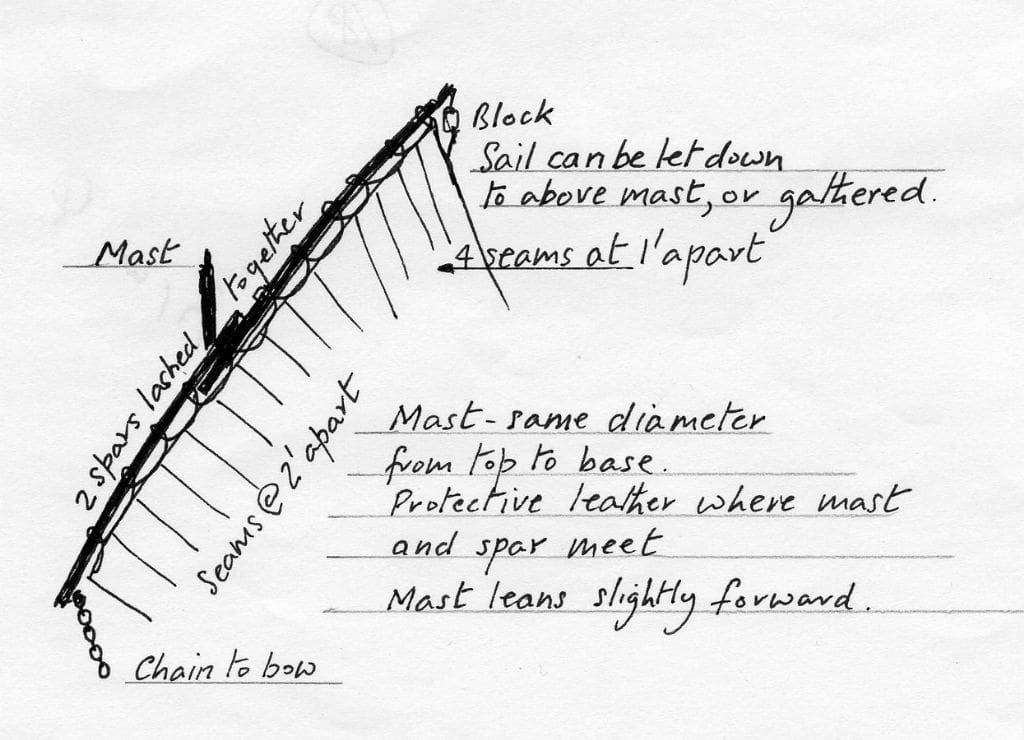 Block
Sail can be let down
to above mast, or gathered.
4 seams at 1' apart
Mast
2 spars lashed together
Seams @ 2' apart
Mast - same diameter
from top to base.
Protective leather where mast
and spar meet
Mast leans slightly forward.
Chain to bow